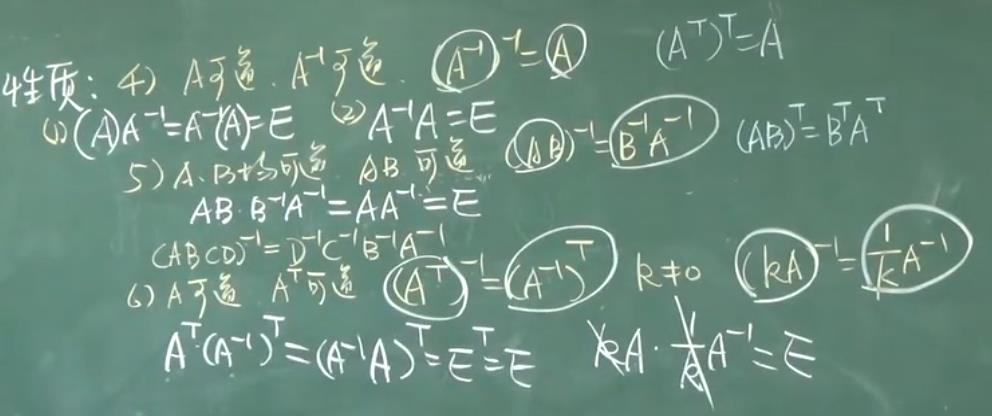 性质: 4) A可逆. A⁻¹可逆. (A⁻¹)⁻¹=A (Aᵀ)ᵀ=A
(1) (A)A⁻¹=A⁻¹(A)=E (2) A⁻¹A=E
5) A、B均可逆 AB可逆 (AB)⁻¹=B⁻¹A⁻¹ (AB)ᵀ=BᵀAᵀ
AB·B⁻¹A⁻¹=AA⁻¹=E
(ABCD)⁻¹=D⁻¹C⁻¹B⁻¹A⁻¹
6) A可逆 Aᵀ可逆 (Aᵀ)⁻¹=(A⁻¹)ᵀ k≠0 (kA)⁻¹=1/k A⁻¹
Aᵀ·(A⁻¹)ᵀ=(A⁻¹A)ᵀ=Eᵀ=E kA·1/k A⁻¹=E